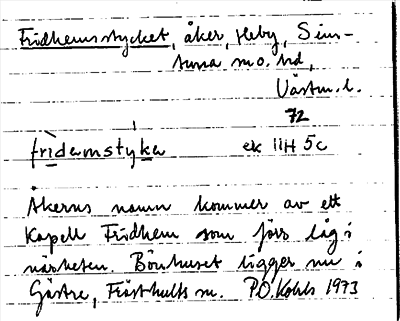 Fridhemsstycket, åker, Heby, Sim-
tuna m o. hd,
Västm. l.
72
fridemstyka ek 11H 5c
Åkerns namn kommer av ett
Kapell Fridhem som förr låg i
närheten. Bönhuset ligger nu i
Gästre, Frösthults sn. P.O. Kohls 1973